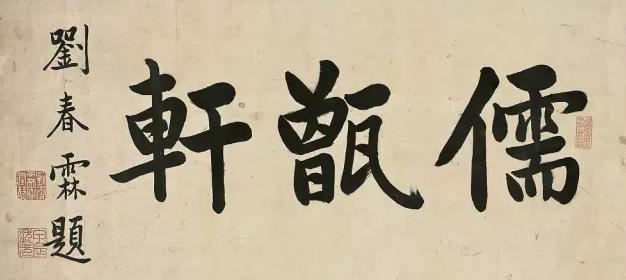 儒甑軒
劉春霖題